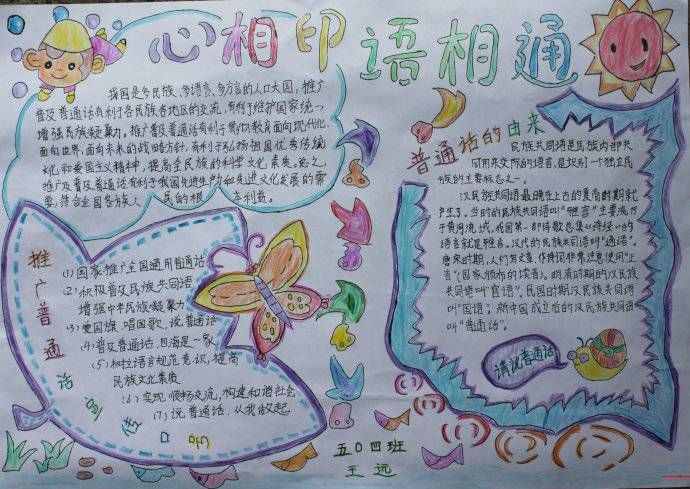 心相印 语相通
我国是多民族、多语言、多方言的人口大国，推广
普及普通话有利于各民族各地区的交流，有利于维护国家统一
增强民族凝聚力。推广普及普通话有利于贯彻教育面向现代化
面向世界，面向未来的战略方针，有利于弘扬祖国优秀传统
文化和爱国主义精神，提高全民族的科学文化素质。总之，
推广及普及普通话有利于我国先进生产力和先进文化发展的需
要，符合全国各族人民的根本利益。
推广普通话宣传口号
(1) 国家推广全国通用普通话
(2) 积极普及民族共同语
增强中华民族凝聚力
(3) 爱国旗，唱国歌，说普通话
(4) 普及普通话，四海是一家
(5) 树立语言规范意识，提高
民族文化素质
(6) 实现顺畅交流，构建和谐社会
(7) 说普通话，从我做起
普通话的由来
民族共同语是民族内部共
同用来交际的语言，是识别一个独立民
族的主要标志之一。
汉民族共同语最晚在上古的夏商时期就
产生了。当时的民族共同语叫“雅言”主要流行
于黄河流域，我国第一部诗歌总集《诗经》的
语言就是雅言。汉代的民族共同语叫“通语”。
唐宋时期，人们写文章、作诗词非常注意使用“正
音”（国家颁布的读音）。明清时期的汉民族
共同语叫“官话”。民国时期汉民族共同语叫
“国语”。新中国成立后的汉民族共同语
叫“普通话”。
请说普通话
五〇四班
王远